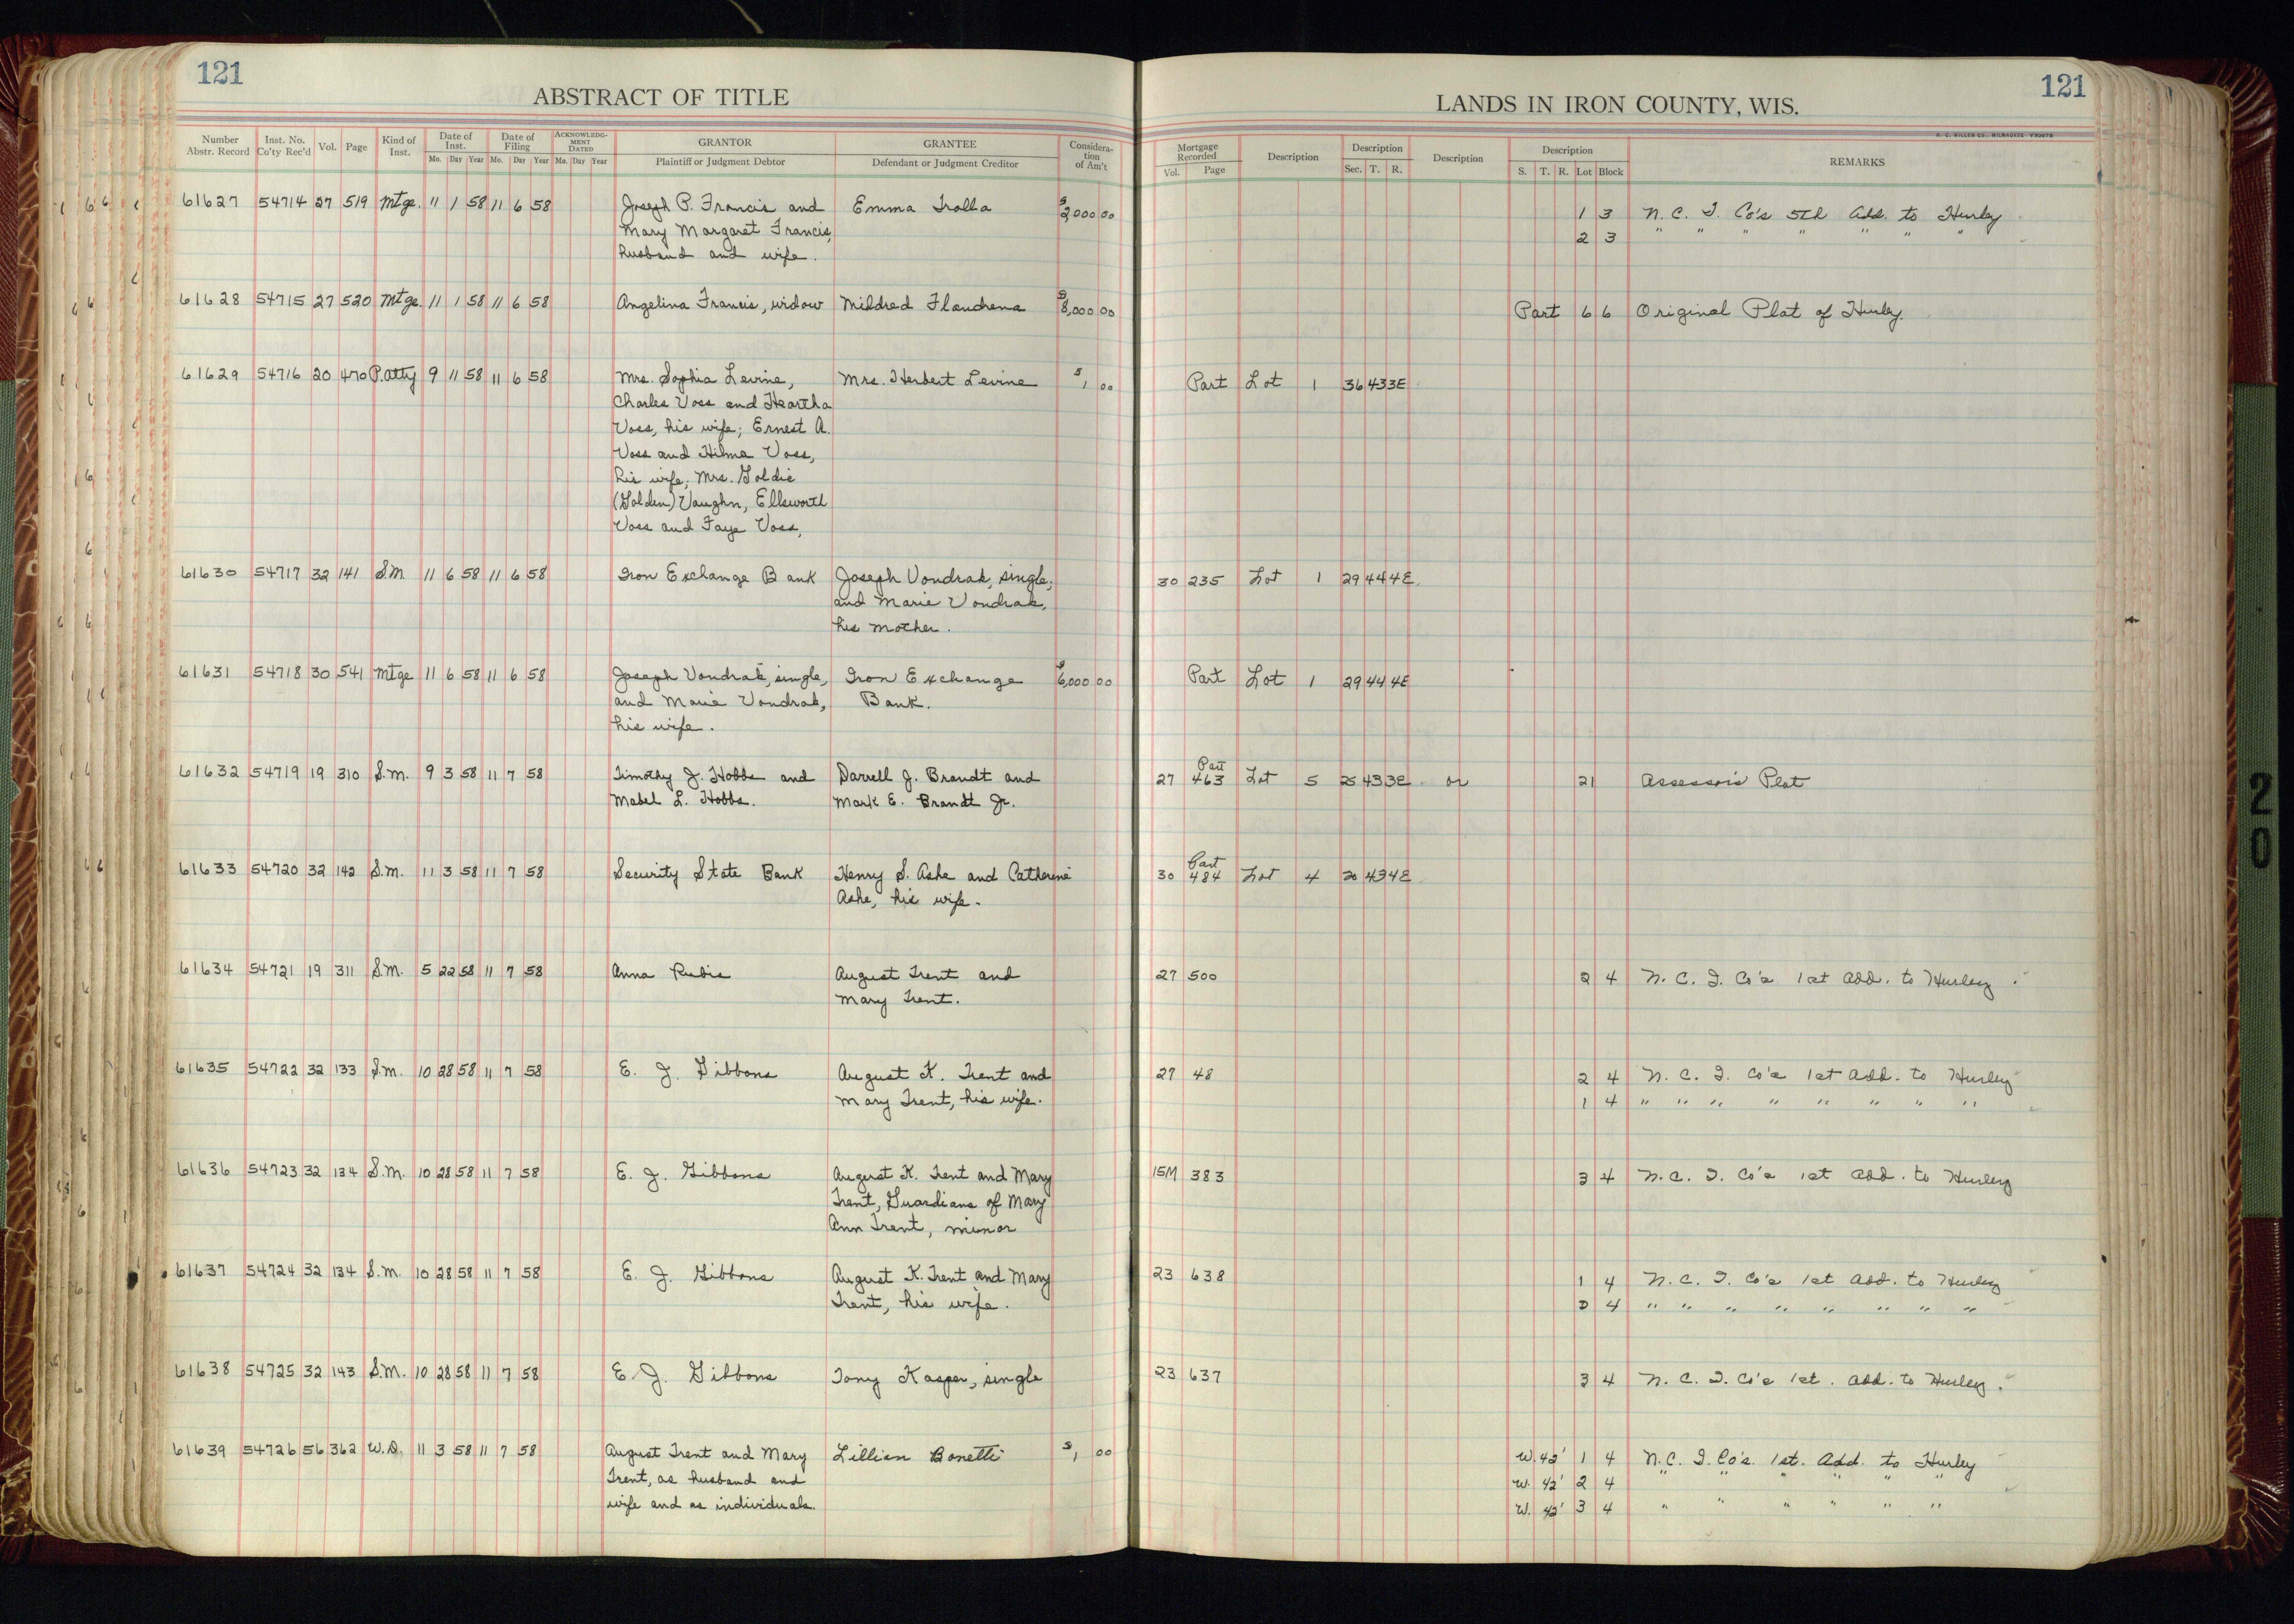 121
ABSTRACT OF TITLE
Number Abstr. Record Inst. No. Co'ty Rec'd Vol. Page Kind of Inst. Date of Inst. Mo. Day Year Date of Filing Mo. Day Year ACKNOWLEDGMENT DATED Mo. Day Year GRANTOR Plaintiff or Judgment Debtor GRANTEE Defendant or Judgment Creditor Consideration of Am't
61627 54714 27 519 Mtge. 11 1 58 11 6 58 Joseph P. Francis and Emma Trolla $2,000 00
Mary Margaret Francis,
husband and wife.
61628 54715 27 520 Mtge. 11 1 58 11 6 58 Angelina Francis, widow Mildred Flandrena $8,000 00
61629 54716 20 470 P.atty 9 11 58 11 6 58 Mrs. Sophia Levine, Mrs. Herbert Levine $1 00
Charles Voss and Heartha
Voss, his wife; Ernest A.
Voss and Hilma Voss,
his wife; Mrs. Goldie
(Golden) Vaughn, Ellsworth
Voss and Faye Voss,
61630 54717 32 141 S.M. 11 6 58 11 6 58 Iron Exchange Bank Joseph Vondrak, single;
and Marie Vondrak,
his mother.
61631 54718 30 541 Mtge 11 6 58 11 6 58 Joseph Vondrak, single, Iron Exchange $6,000 00
and Marie Vondrak, Bank.
his wife.
61632 54719 19 310 S.M. 9 3 58 11 7 58 Timothy J. Hobbs and Darrell J. Brandt and
Mabel L. Hobbs. Mark E. Brandt Jr.
61633 54720 32 142 S.M. 11 3 58 11 7 58 Security State Bank Henry S. Ashe and Catherine
Ashe, his wife.
61634 54721 19 311 S.M. 5 22 58 11 7 58 Anna Rubis August Trent and
Mary Trent.
61635 54722 32 133 S.M. 10 28 58 11 7 58 E. J. Gibbons August K. Trent and
Mary Trent, his wife.
61636 54723 32 134 S.M. 10 28 58 11 7 58 E. J. Gibbons August K. Trent and Mary
Trent, Guardians of Mary
Ann Trent, minor
61637 54724 32 134 S.M. 10 28 58 11 7 58 E. J. Gibbons August K. Trent and Mary
Trent, his wife.
61638 54725 32 143 S.M. 10 28 58 11 7 58 E. J. Gibbons Tony Kasper, single
61639 54726 56 362 W.D. 11 3 58 11 7 58 August Trent and Mary Lillian Bonetti $1 00
Trent, as husband and
wife and as individuals.
121
LANDS IN IRON COUNTY, WIS.
Mortgage Recorded Vol. Page Description Description Sec. T. R. Description Description S. T. R. Lot Block REMARKS
1 3 N. C. I. Co's 5th Add. to Hurley
2 3 " " " " " " "
Part 6 6 Original Plat of Hurley.
Part Lot 1 36 43 3E
30 235 Lot 1 29 44 4E
Part Lot 1 29 44 4E
Part
27 463 Lot 5 25 43 3E or 21 Assessor's Plat
Part
30 484 Lot 4 20 43 4E
27 500 2 4 N. C. I. Co's 1st Add. to Hurley
27 48 2 4 N. C. I. Co's 1st Add. to Hurley
1 4 " " " " " " " "
15M 383 3 4 N. C. I. Co's 1st Add. to Hurley
23 638 1 4 N. C. I. Co's 1st Add. to Hurley
2 4 " " " " " " " "
23 637 3 4 N. C. I. Co's 1st. Add. to Hurley.
W. 42' 1 4 N. C. I. Co's. 1st. Add. to Hurley
W. 42' 2 4 " " " " " "
W. 42' 3 4 " " " " " "
20